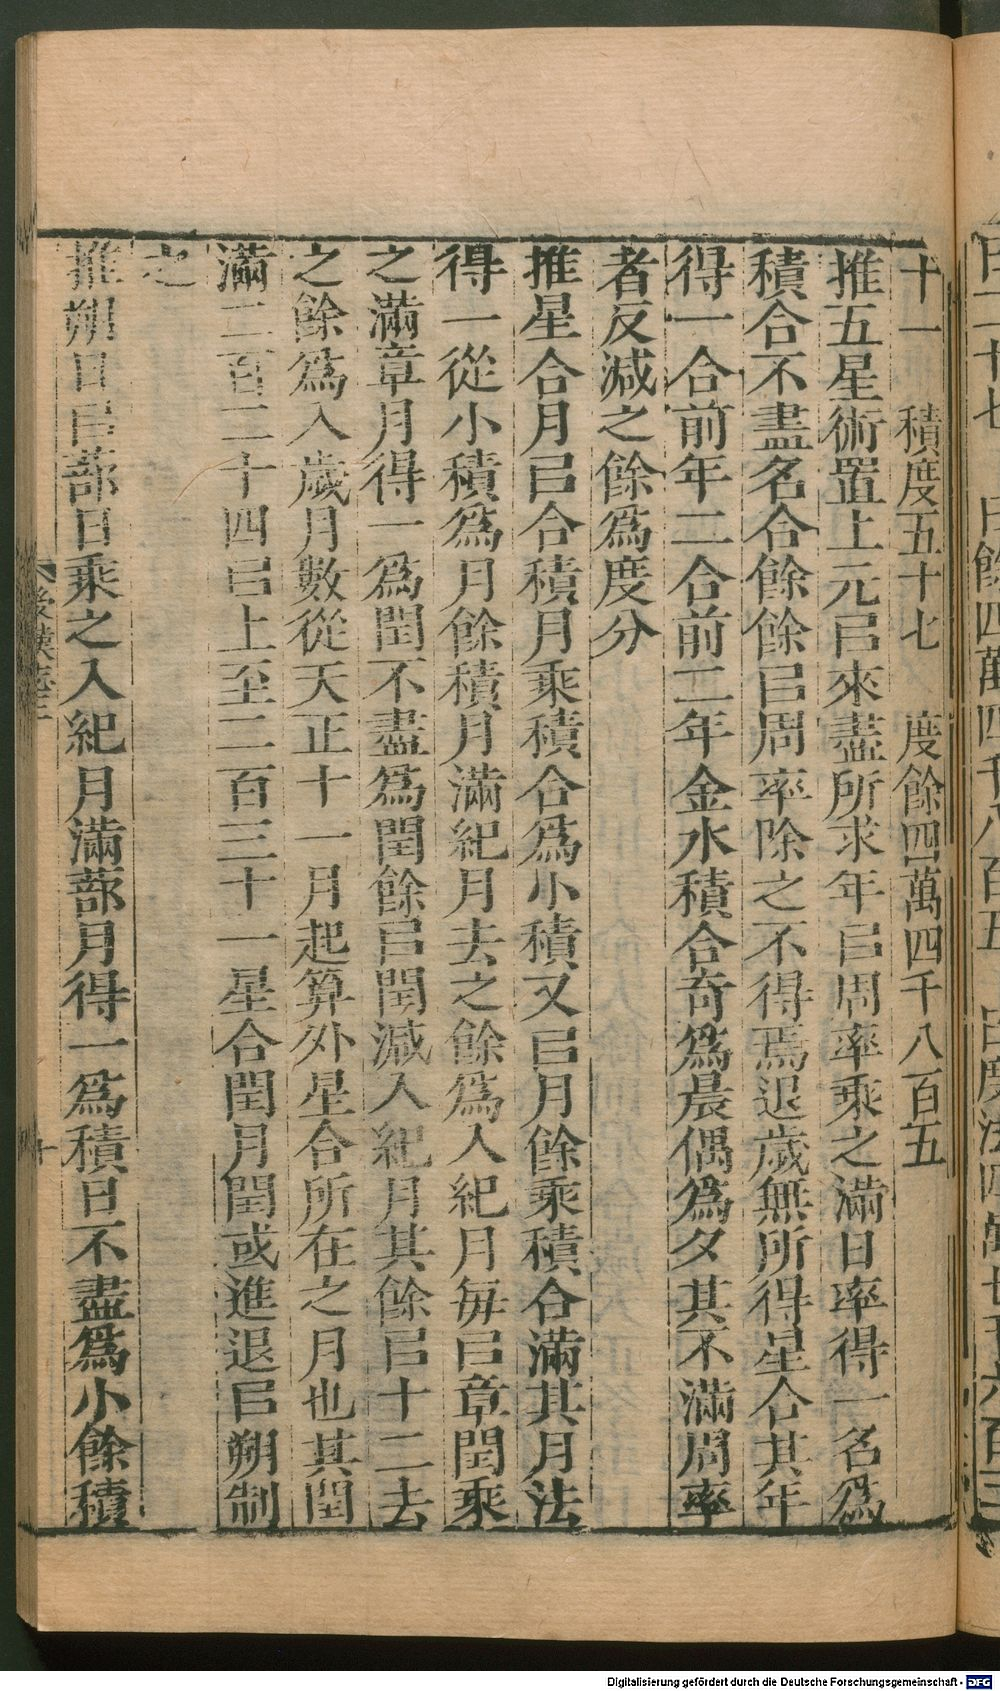 十一　積度五十七　度餘四萬四千八百五
推五星術置上元㠯來盡所求年㠯周率乘之滿日率得一名為
積合不盡名合餘餘㠯周率除之不得焉退歲無所得星合其年
得一合前年二合前二年金水積合奇為晨偶為夕其不滿周率
者反減之餘為度分
推星合月㠯合積月乘積合為小積又㠯月餘乘積合滿其月法
得一從小積為月餘積月滿紀月去之餘為入紀月每㠯章閏乘
之滿章月得一為閏不盡為閏餘㠯閏減入紀月其餘㠯十二去
之餘為入歲月數從天正十一月起算外星合所在之月也其閏
滿二百二十四㠯上至二百三十一星合閏月閏或進退㠯朔制
之
推朔日㠯蔀日乘之入紀月滿蔀月得一為積日不盡為小餘積
後漢志三
十
Digitalisierung gefördert durch die Deutsche Forschungsgemeinschaft - DFG